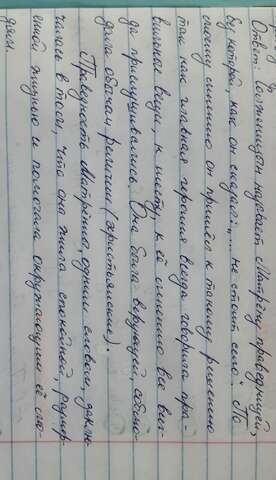 Ответ: Солженицын называет Матрёну праведницей,
без которой, как он сказал: „... не стоит село". По
смыслу именно он пришёл к такому решению
так как главная героиня всегда говорила пра-
вильные вещи, к месту, к её мнению все
да прислушивались. Она была верующей, соблю-
дала обычаи религии (христианские).
Праведность Матрёны, одним словом, заклю-
чалась в том, что она жила спокойной, размер-
енной жизнью и помогала окружающим её лю-
дям.